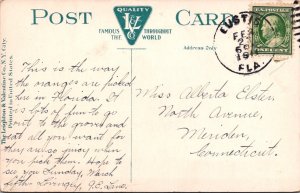 POST CARD
QUALITY
FAMOUS THROUGHOUT
THE WORLD
Address Only
FLA.
This is the way
the oranges are picked
here in Florida. It
is lots of fun to go
out to the grove and
eat all you want for
they are so juicy when
you pick them. Hope to
see you Sunday, March
Miss Alberta Elster,
North Avenue,
Meriden,
Connecticut.